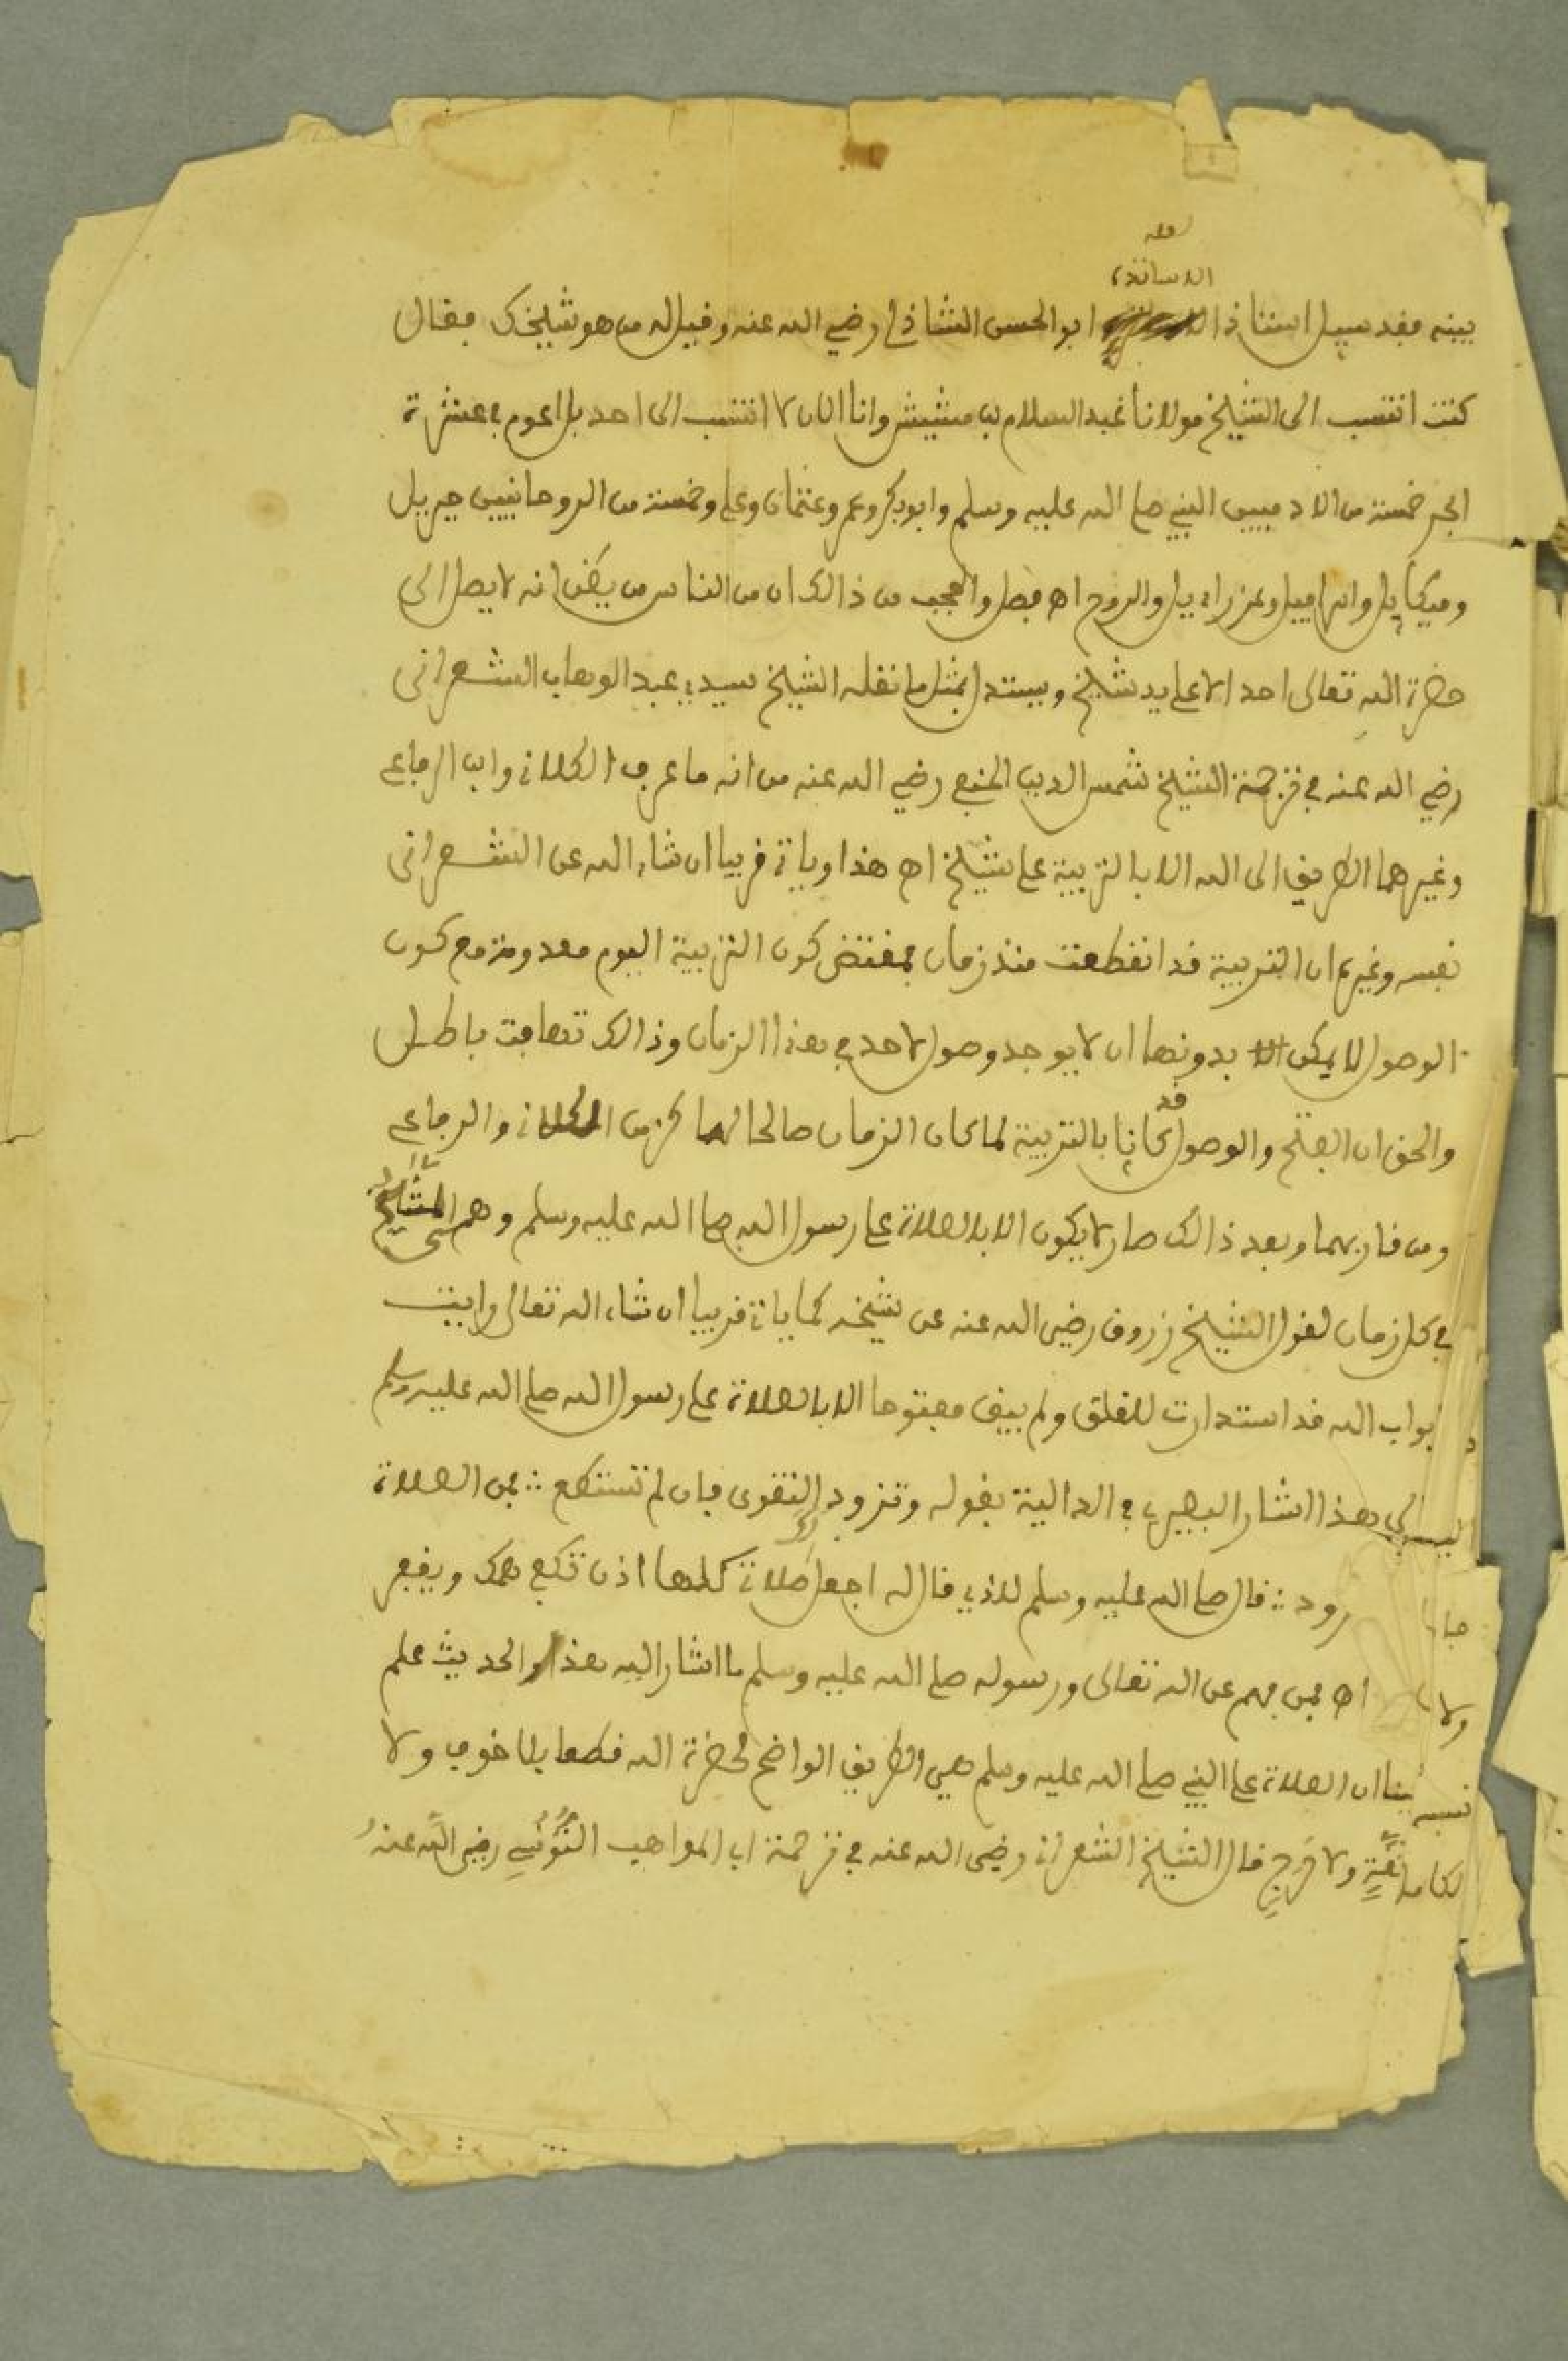 لعله
الاساتذة
بينه فقد سيل استاذ ابو الحسن الشاذلي رضي الله عنه وقيل له من هو شيخك فقال
كنت انتسب الى الشيخ مولانا عبد السلام بن مشيش وانا الان لا انتسب الى احد بل اعوم في عشرة
ابحر خمسة من الادميين النبي صلى الله عليه وسلم وابو بكر وعمر وعثمان وعلي وخمسة من الروحانيين جبريل
وميكاييل واسرافيل وعزراييل والروح اه فصل والعجب من ذالك ان من الناس من يظن انه لا يصل الى
حضرة الله تعالى احد الا على يد شيخ ويستدل بمثل ما نقله الشيخ سيدي عبد الوهاب الشعراني
رضي الله عنه في ترجمة الشيخ شمس الدين الحنفي رضي الله عنه من انه ما عرف الكلاني وابن الرفاعي
وغيرهما الطريق الى الله الا بالتربية على شيخ اه هذا وياتي قريبا ان شاء الله عن الشعراني
نفسه وغيره ان التربية قد انقطعت منذ زمان فمقتضى كون التربية اليوم معدومة مع كون
الوصول لا يمكن بدونها ان لا يوجد وصول لاحد في هذا الزمان وذالك تهافت باطل
والحق ان الفتح والوصول قد كانا بالتربية لما كان الزمان صالحا لها كزمن الكلاني والرفاعي
ومن قاربهما وبعد ذالك صار لا يكون الا بالصلاة على رسول الله صلى الله عليه وسلم وهم المشايخ
في كل زمان لقول الشيخ زروق رضي الله عنه عن شيخه كما ياتي قريبا ان شاء الله تعالى رايت
ابواب الله قد استدارت للغلق ولم يبق مفتوحا الا بالصلاة على رسول الله صلى الله عليه وسلم
لهذا اشار البصيري في الدالية بقوله وتزود التقوى فان لم تستطع ∴ فمن الصلاة
رود ∴ قال صلى الله عليه وسلم للذي قال له اجعل لك صلاتي كلها اذن تكفى همك ويغفر
اه فمن فهم عن الله تعالى ورسوله صلى الله عليه وسلم ما اشار اليه هذا الحديث علم
ان الصلاة على النبي صلى الله عليه وسلم هي الطريق الواضح لحضرة الله قطعا بلا خوف ولا
ولا حرج قال الشيخ الشعراني رضي الله عنه في ترجمة ابي المواهب التونسي رضي الله عنه